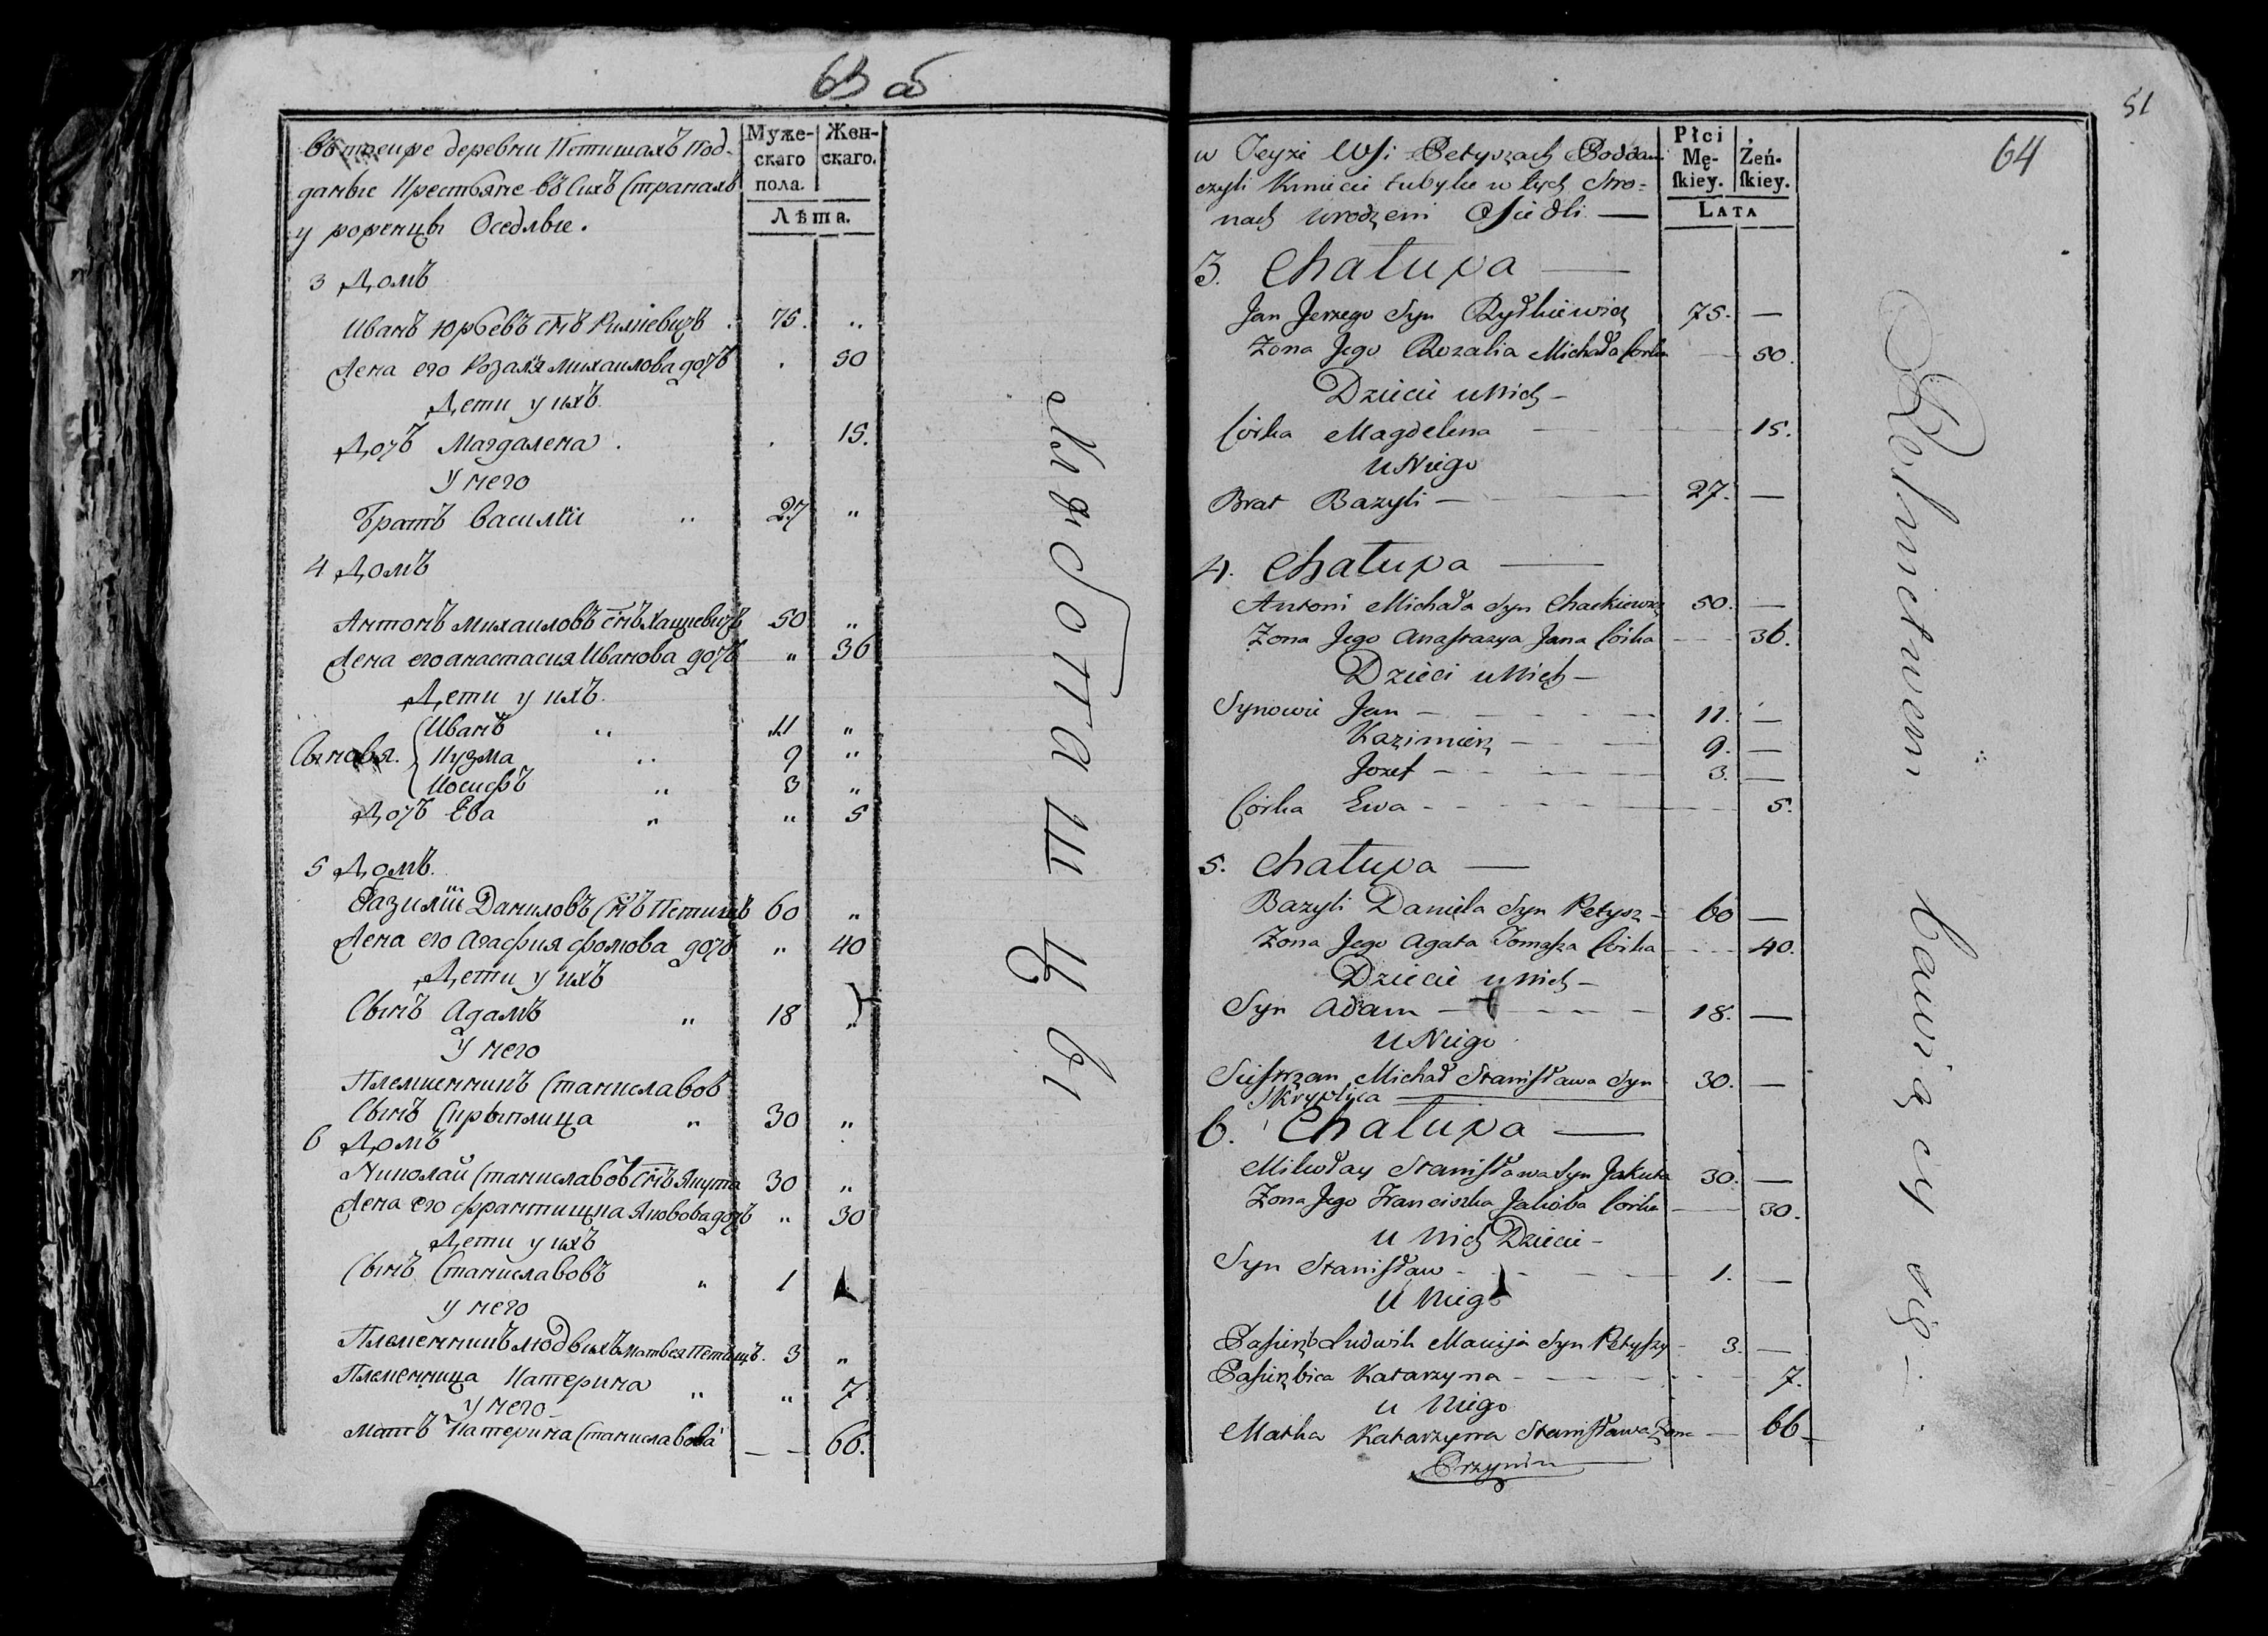 63 об
въ тоеиже деревни Петишахъ Под-
данные Крестьяне въ Сихъ Странахъ
у роженцы Оседлые.
Муже-
скаго
пола.
Жен-
скаго.
Лѣта.
3 Домъ
Иванъ Юрьевъ снъ 75. „
Жена его Розаля михаилова дочь . 50
Дети у ихъ
Дочь Магдалена . . 15.
У него
Братъ василій „ 27 „
4 Домъ
Антонъ михаиловъ снъ Хацкевичъ 50 „
Жена его анастасия Иванова дочь „ 36
Дети у ихъ.
Иванъ „ 11 „
Сыновя. Кузма „ 9 „
Иосифъ „ 3 „
Дочь Ева „ „ 5
5 Домъ.
Базилій Даниловъ Снъ Петишъ 60 „
Жена его агафия фомова дочь „ 40
Дети у ихъ
Сынъ Адамъ „ 18 „
У него
Племненникъ Станиславов
Сынъ Скрыплица „ 30 „
6 Домъ
Николай Станиславов Снъ Якута 30 „
Жена его франтишка Яковова дочь „ 30
Дети у ихъ
Сынъ Станиславовъ „ 1
у него
Племенникъ людвихъ матвея Петишъ. 3 „
Племенница Катерина „ „ 7
у него
Мать Катерина Станиславова — — 66.
Хлѣбопашцы
51
64
w Teyże Wsi Petyszach Poddani
czyli Kmiecie tubylce w tych Stro-
nach urodzeni Osiedli —
Płci
Mę-
skiey.
Żeń-
skiey.
LATA
3. Chałupa —
Jan Jerzego Syn Rydkiewicz 75. —
Żona Jego Rozalia Michała Corka — 50.
Dziecie u Nich —
Córka Magdelena — — 15.
U Niego
Brat Bazyli — — 27. —
4. Chałupa —
Antoni Michała Syn Chackiewicz 50. —
Żona Jego Anastazya Jana Córka — 36.
Dzieci u Nich —
Synowie Jan — — 11. —
Kazimierz — — 9. —
Jozef — — 3. —
Córka Ewa — — 5.
5. Chałupa —
Bazyli Daniela Syn Petysz — 60 —
Żona Jego Agata Tomasza Córka — 40.
Dziecie u Nich —
Syn Adam — — 18. —
U Niego
Siestrzan Michał Stanisława Syn 30. —
Skryplica —
6. Chałupa —
Mikołay Stanisława Syn Jakuta 30. —
Żona Jego Franciszka Jakóba Córka — 30.
U Nich Dziecie —
Syn Stanisław — — 1. —
U Niego
Pasierzb Ludwik Macieja Syn Petyszy — 3. —
Pasierzbica Katarzyna — — 7.
U Niego
Matka Katarzyna Stanisława Żona — 66 —
Rolnictwem bawiący się —